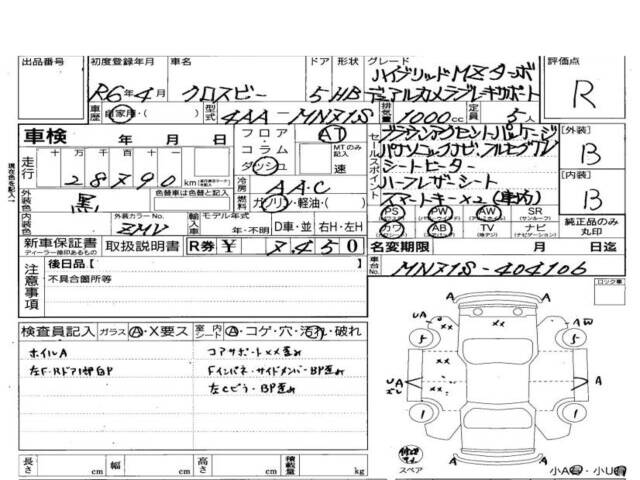 出品番号 初度登録年月 車名 ドア 形状 グレード 評価点
R6年4月 クロスビー 5 HB ハイブリッドMZターボ
デュアルカメラブレーキサポート R
車歴 自家用・( ) 型式 4AA-MN71S 排気量 1000cc 定員 5人
車検 年 月 日
フロア・コラム ダッシュ AT MTのみ記入 速
セールスポイント
パワコンソナビ、フルセグTV
シートヒーター
ハーフレザーシート
スマートキー×2(車内)
[外装] B
[内装] B
走行 十万 万 千 百 十 一 28790 km
現在色を記入
外装色 黒 色替車は色替と記入
冷房 AAC
燃料 ガソリン・軽油・( )
PS (パワステ) PW AW SR (サンルーフ)
カワ AB TV ナビ
純正品のみ丸印
内装色 外装カラーNo. ZMV 輸入車 モデル年式 年・不明 D車・並 右H・左H
新車保証書 ディーラー捺印あるもの 取扱説明書 R券 ¥ 7,450 名変期限 月 日迄
注意事項 後日品[ ]
不具合箇所等
車台No. MN71S-404106
ロック車
検査員記入 ガラス A・X要ス 室内シート A・コゲ・穴・汚れ・破れ
ホイルA コアサポートXX歪み
左F・Rドア1部白P Fインパネ・サイドメンバーBP歪み
左Cピラー・BP歪み
UA ×× A
5 5
UA A A
××
1 1
A
スペア
小A ・小U
長さ cm 幅 cm 高さ cm 積載量 kg